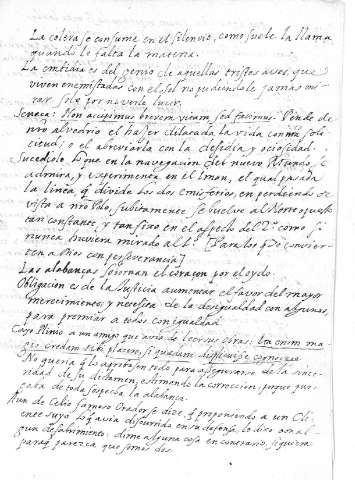 La colera se consume en el silencio, como suele la llama
quando le falta la materia.
La embidia es del genio de aquellas tristes aves, que
viven enemistadas con el sol no pudiendole jamas mi-
rar solo por no verle lucir.
Seneca: Non accipimus brevem vitam sed facimus. Pende de
nro alvedrio el hazer dilatada la vida con nra soli
citud; o el abreviarla con la desidia y ociosidad.
Sucediole lo que en la navegacion del nuevo Mundo, se
admira, y experimenta en el Iman, el qual pasada
la linea q divide los dos emisferios, en perdiendo de
vista a nro Polo, subitamente se vuelve al Norte opuesto
tan constante, y tan fixo en el aspecto del 2º como si
nunca huviera mirado al 1º. Para los q se convier-
ten a Dios con perseverancia]
Las alabanças sobornan el coraçon por el oydo.
Obligacion es de la Justicia aumentar el favor del mayor
merecimiento; y necesita de la desigualdad con algunos,
para premiar a todos con igualdad.
Cayo Plinio a un amigo que avia de leer sus obras:
credam tibi placere, si quædam displicuisse cognovero
No queria q los aprobase en todo para asegurarse de la since-
ridad de su dictamen, estimando la correccion, porque pur-
gaba de toda sospecha la alabanza.
Aun de Celio famoso Orador se dize, q proponiendo a un Cli-
ente suyo lo q avia discurrido en su defensa, le dixo con al-
gun desabrimiento: dime alguna cosa en contrario, siquiera
paraq parezca que somos dos.